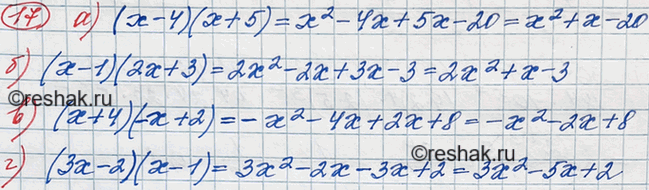 17 а) (x-4)(x+5)=x²-4x+5x-20=x²+x-20
б) (x-1)(2x+3)=2x²-2x+3x-3=2x²+x-3
©reshak.ru
в) (x+4)(-x+2)=-x²-4x+2x+8=-x²-2x+8
©reshak.ru
г) (3x-2)(x-1)=3x²-2x-3x+2=3x²-5x+2